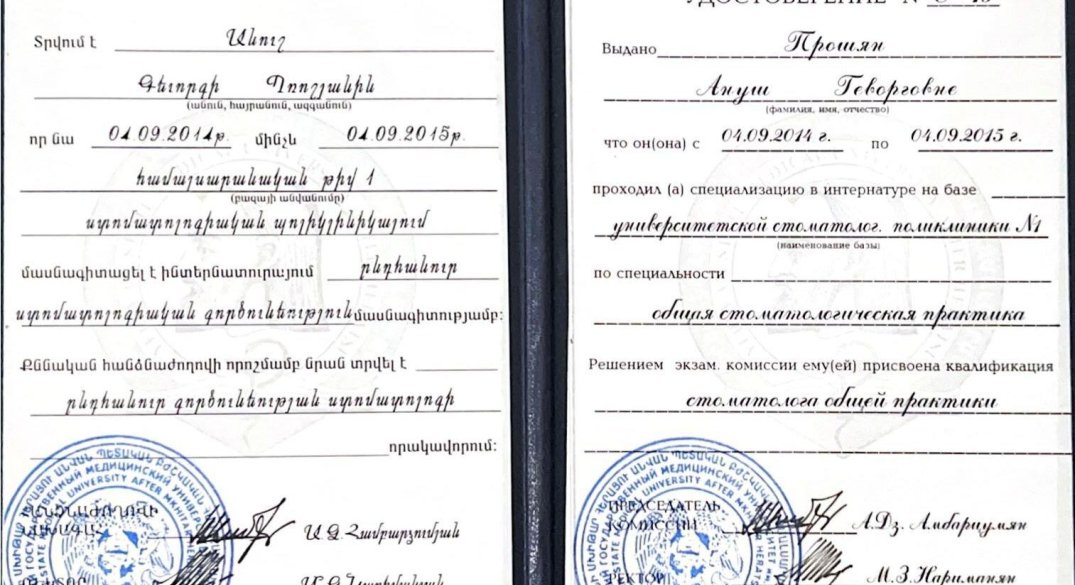 Տրվում է Անուշ
Գևորգի Պռոշյանին
(անուն, հայրանուն, ազգանուն)
որ նա 04.09.2014թ. մինչև 04.09.2015թ.
համալսարանական թիվ 1
(բազայի անվանումը)
ստոմատոլոգիական պոլիկլինիկայում
մասնագիտացել է ինտերնատուրայում ընդհանուր
ստոմատոլոգիական գործունեություն մասնագիտությամբ:
Քննական հանձնաժողովի որոշմամբ նրան տրվել է
ընդհանուր գործունեության ստոմատոլոգի
որակավորում:
Ա.Ջ.Համբարձումյան
УДОСТОВЕРЕНИЕ N
Выдано Прошян
Ануш Геворговне
(фамилия, имя, отчество)
что он(она) с 04.09.2014 г. по 04.09.2015 г.
проходил (а) специализацию в интернатуре на базе
университетской стоматолог. поликлиники №1
(наименование базы)
по специальности
общая стоматологическая практика
Решением экзам. комиссии ему(ей) присвоена квалификация
стоматолога общей практики
ПРЕДСЕДАТЕЛЬ
КОМИССИИ А.Дз. Амбарцумян
РЕКТОР М.З.Нариманян